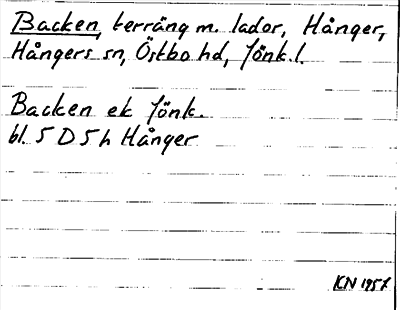 Backen, terräng m. lador, Hånger,
Hångers sn, Östbo hd, Jönk. l.
Backen ek Jönk.
bl. 5 D 5 h Hånger
KN 1957